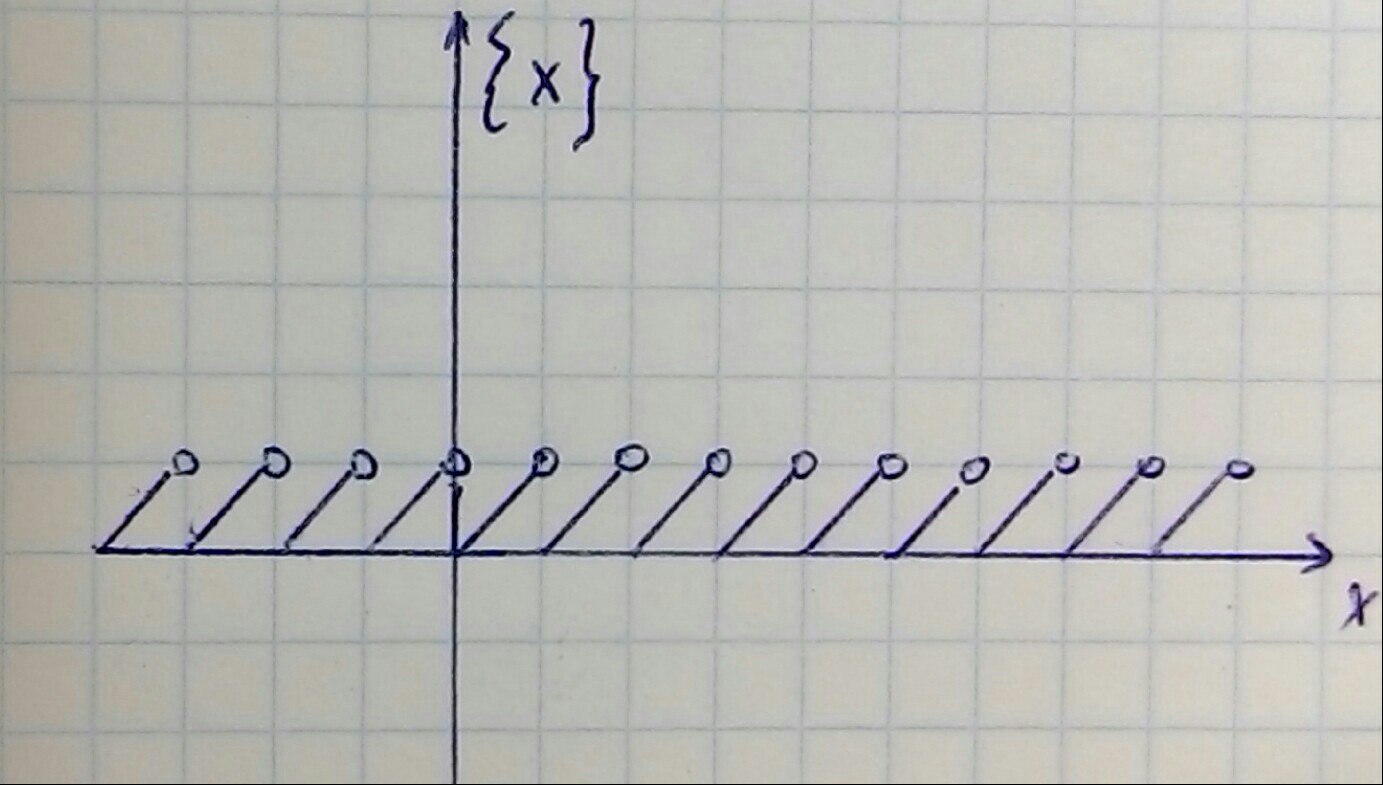 {x}
x